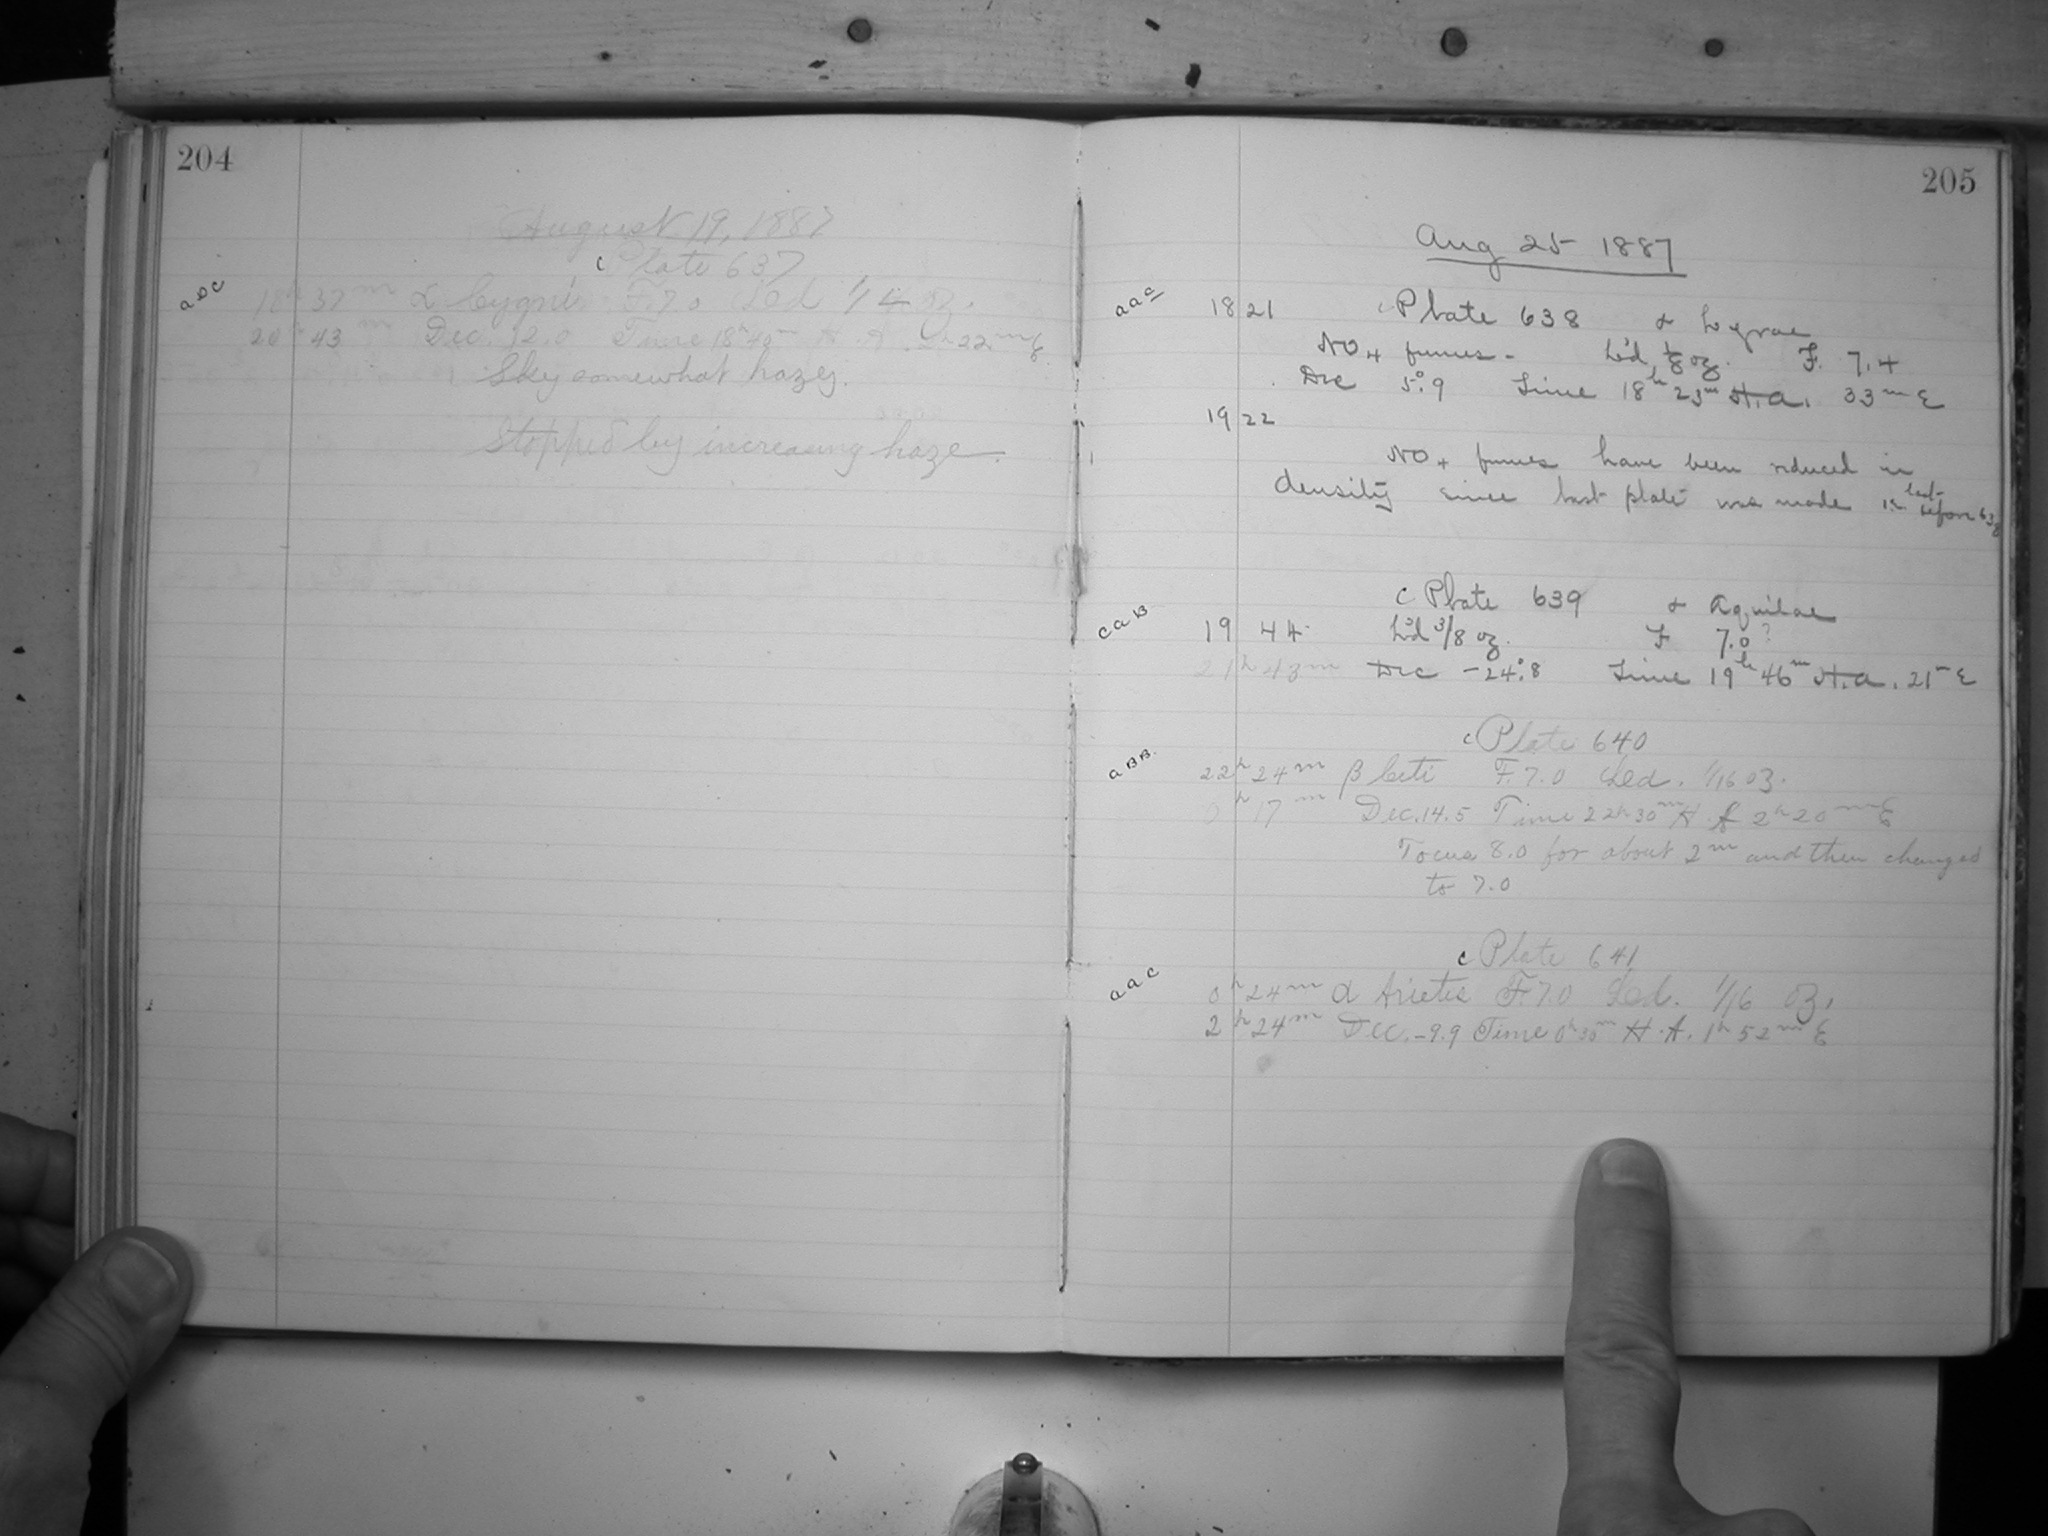 204
August 19, 1887
c Plate 637
aDC 18h 37m α Cygni F. 7.0 Led 1/4 oz.
20h 43m Dec. 12.0 Time 18h 40m H A 2h 22m E
Sky somewhat hazy.
Stopped by increasing haze.
205
Aug 25 1887
aac 18 21 c Plate 638 α Lyrae
NO4 fumes - L'd 1/8 oz. F. 7.4
Dec 5°.9 Time 18h 23m H.A. 33m E
19 22
NO4 fumes have been reduced in
density since last plate was made i.e. last before 638
c Plate 639 α Aquilae
CaB 19 44 L'd 3/8 oz. F 7.0?
21h 43m Dec -24°.8 Time 19h 46m H.A. 21m E
c Plate 640
aBB. 22h 24m β Ceti F. 7.0 Led. 1/16 oz.
0h 17m Dec. 14.5 Time 22h 30m H A 2h 20m E
Focus 8.0 for about 2m and then changed
to 7.0
c Plate 641
aac 0h 24m α Arietis F. 7.0 Led. 1/16 oz.
2h 24m Dec. -9.9 Time 0h 30m H.A. 1h 52m E